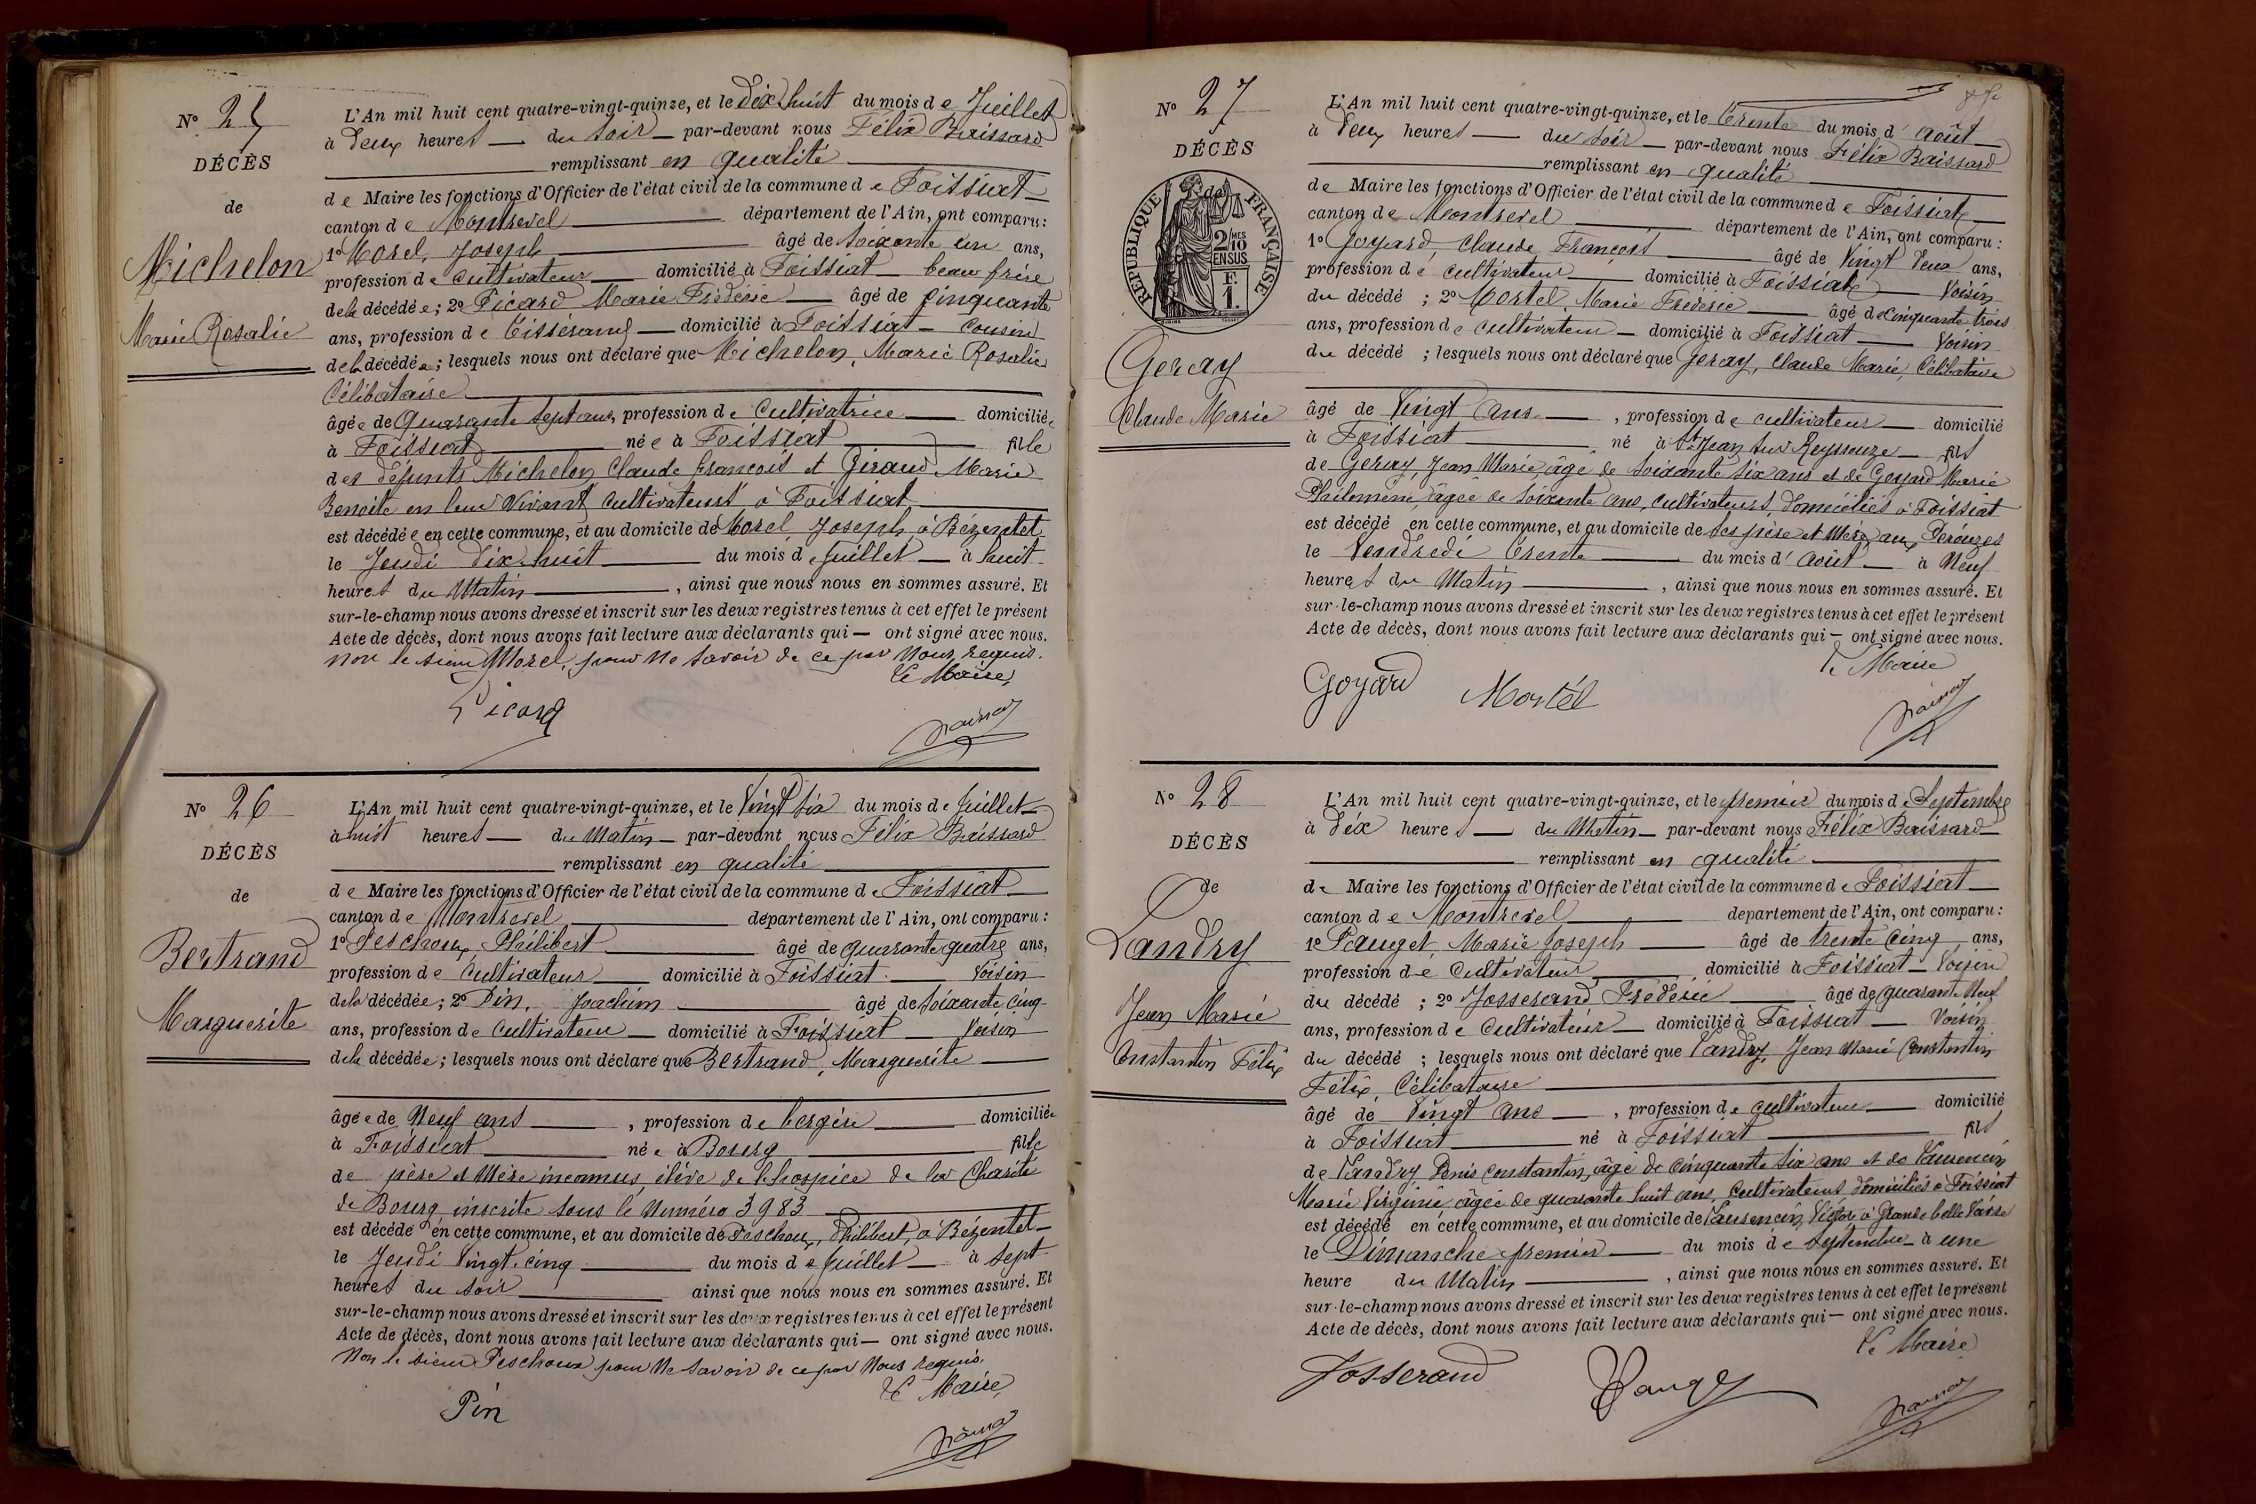 N° 25
DÉCÈS
de
Michelon
Marie Rosalie
L'An mil huit cent quatre-vingt-quinze, et le Dix huit du mois de Juillet
à Deux heures du soir par-devant nous Félix Boissard
remplissant en qualité
de Maire les fonctions d'Officier de l'état civil de la commune de Foissiat
canton de Montrevel département de l'Ain, ont comparu :
1° Morel, Joseph âgé de soixante un ans,
profession de cultivateur domicilié à Foissiat beau frère
de la décédée ; 2° Picard Marie Frédéric âgé de cinquante
ans, profession de Tisserand domicilié à Foissiat Cousin
de la décédée ; lesquels nous ont déclaré que Michelon, Marie Rosalie
Célibataire
âgée de Quarante sept ans, profession de Cultivatrice domiciliée
à Foissiat née à Foissiat fille
des défunts Michelon Claude François et Giraud Marie
Benoite en leur vivant cultivateurs à Foissiat
est décédée en cette commune, et au domicile de Morel, Joseph, à Bézentet
le Jeudi Dix-huit du mois de Juillet à huit
heures du Matin, ainsi que nous nous en sommes assuré. Et
sur-le-champ nous avons dressé et inscrit sur les deux registres tenus à cet effet le présent
Acte de décès, dont nous avons fait lecture aux déclarants qui — ont signé avec nous.
non le sieur Morel, pour ne savoir de ce par nous requis.
Le Maire,
Picard
N° 26
DÉCÈS
de
Bertrand
Marguerite
L'An mil huit cent quatre-vingt-quinze, et le Vingt six du mois de Juillet
à huit heures du Matin par-devant nous Félix Boissard
remplissant en qualité
de Maire les fonctions d'Officier de l'état civil de la commune de Foissiat
canton de Montrevel département de l'Ain, ont comparu :
1° Peschoux, Philibert âgé de quarante quatre ans,
profession de Cultivateur domicilié à Foissiat Voisin
de la décédée ; 2° Pin, Joachim âgé de soixante cinq
ans, profession de Cultivateur domicilié à Foissiat Voisin
de la décédée ; lesquels nous ont déclaré que Bertrand, Marguerite
âgée de Neuf ans, profession de bergère domiciliée
à Foissiat née à Bourg fille
de père et Mère inconnus, élève de l'hospice de la Charité
de Bourg inscrite sous le Numéro 3983
est décédé en cette commune, et au domicile de Peschoux, Philibert, à Bézentet
le Jeudi Vingt-cinq du mois de Juillet à sept
heures du soir ainsi que nous nous en sommes assuré. Et
sur-le-champ nous avons dressé et inscrit sur les deux registres tenus à cet effet le présent
Acte de décès, dont nous avons fait lecture aux déclarants qui — ont signé avec nous.
Non le sieur Peschoux pour ne savoir de ce par nous requis.
Le Maire,
Pin
N° 27
DÉCÈS
de
RÉPUBLIQUE FRANÇAISE
2/10 MES
EN SUS
F.
1.
Geray
Claude Marie
L'An mil huit cent quatre-vingt-quinze, et le Trente du mois d'août
à Deux heures du soir par-devant nous Félix Boissard
remplissant en qualité
de Maire les fonctions d'Officier de l'état civil de la commune de Foissiat
canton de Montrevel département de l'Ain, ont comparu :
1° Goyard, Claude François âgé de Vingt Deux ans,
profession de cultivateur domicilié à Foissiat Voisin
du décédé ; 2° Mortel, Marie Frédéric âgé de Cinquante trois
ans, profession de cultivateur domicilié à Foissiat Voisin
du décédé ; lesquels nous ont déclaré que Geray, Claude Marie, Célibataire
âgé de Vingt Ans, profession de cultivateur domicilié
à Foissiat né à St Jean sur Reyssouze fils
de Geray, Jean Marie âgé de soixante six ans et de Goyard Marie
Philomène, âgée de soixante ans, cultivateurs, Domiciliés à Foissiat
est décédé en cette commune, et au domicile de ses père et Mère aux Perouzes
le Vendredi trente du mois d'août à Neuf
heures du Matin, ainsi que nous nous en sommes assuré. Et
sur-le-champ nous avons dressé et inscrit sur les deux registres tenus à cet effet le présent
Acte de décès, dont nous avons fait lecture aux déclarants qui — ont signé avec nous.
Le Maire
Goyard Mortel
N° 28
DÉCÈS
de
Landry
Jean Marie
Constantin Félix
L'An mil huit cent quatre-vingt-quinze, et le premier du mois de Septembre
à Dix heures du Matin par-devant nous Félix Boissard
remplissant en qualité
de Maire les fonctions d'Officier de l'état civil de la commune de Foissiat
canton de Montrevel département de l'Ain, ont comparu :
1° Pauget, Marie Joseph âgé de trente cinq ans,
profession de Cultivateur domicilié à Foissiat Voisin
du décédé ; 2° Josserand Frédéric âgé de quarante Neuf
ans, profession de Cultivateur domicilié à Foissiat Voisin
du décédé ; lesquels nous ont déclaré que Landry, Jean Marie Constantin
Félix, Célibataire
âgé de Vingt Ans, profession de cultivateur domicilié
à Foissiat né à Foissiat fils
de Landry Denis Constantin, âgé de cinquante six ans et de Laurencin
Marie Virginie âgée de quarante huit ans, cultivateurs domiciliés à Foissiat
est décédé en cette commune, et au domicile de Laurencin, Victor à Grande belle Vavre
le Dimanche premier du mois de septembre à une
heure du Matin, ainsi que nous nous en sommes assuré. Et
sur-le-champ nous avons dressé et inscrit sur les deux registres tenus à cet effet le présent
Acte de décès, dont nous avons fait lecture aux déclarants qui — ont signé avec nous.
Le Maire
Josserand Pauget